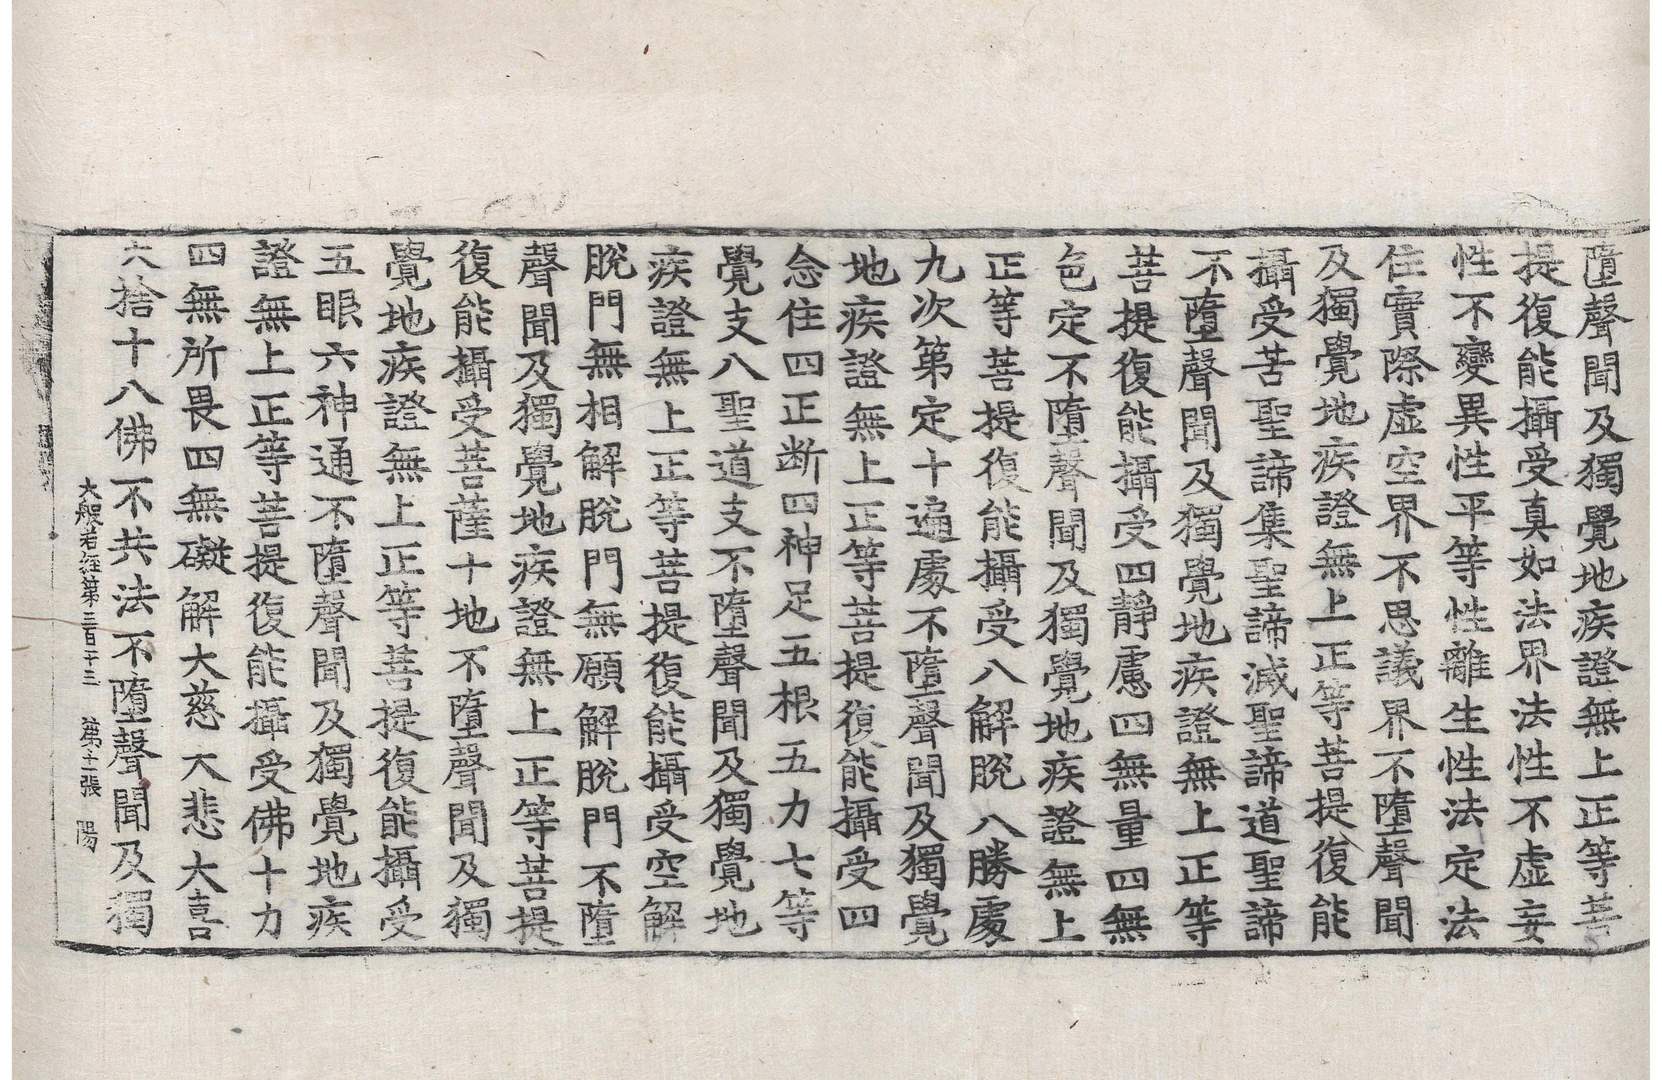 墮聲聞及獨覺地疾證無上正等菩
提復能攝受真如法界法性不虛妄
性不變異性平等性離生性法定法
住實際虛空界不思議界不墮聲聞
及獨覺地疾證無上正等菩提復能
攝受苦聖諦集聖諦滅聖諦道聖諦
不墮聲聞及獨覺地疾證無上正等
菩提復能攝受四靜慮四無量四無
色定不墮聲聞及獨覺地疾證無上
正等菩提復能攝受八解脫八勝處
九次第定十遍處不墮聲聞及獨覺
地疾證無上正等菩提復能攝受四
念住四正断四神足五根五力七等
覺支八聖道支不墮聲聞及獨覺地
疾證無上正等菩提復能攝受空解
脫門無相解脫門無願解脫門不墮
聲聞及獨覺地疾證無上正等菩提
復能攝受菩薩十地不墮聲聞及獨
覺地疾證無上正等菩提復能攝受
五眼六神通不墮聲聞及獨覺地疾
證無上正等菩提復能攝受佛十力
四無所畏四無礙解大慈大悲大喜
大捨十八佛不共法不墮聲聞及獨
大般若經第三百十三 第十一張 陽